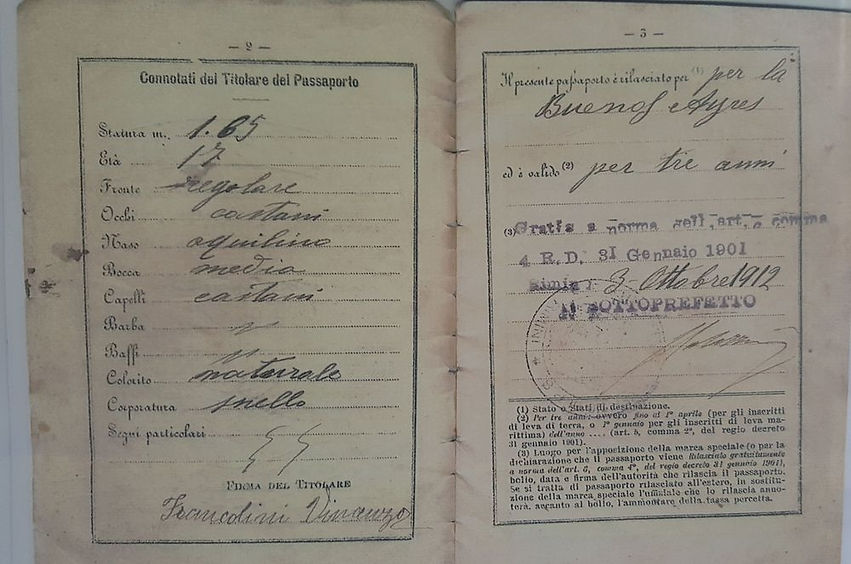 — 2 —
Connotati del Titolare del Passaporto
Statura m. 1.65
Età 17
Fronte regolare
Occhi castani
Naso aquilino
Bocca media
Capelli castani
Barba
Baffi
Colorito naturale
Corporatura snello
Segni particolari
FIRMA DEL TITOLARE
Francolini Vincenzo
— 3 —
Il presente passaporto è rilasciato per (1) per la
Buenos Ayres
ed è valido (2) per tre anni
(3) Gratis a norma dell'art. comma
4 R.D. 31 Gennaio 1901
Rimini 3 Ottobre 1912
Il SOTTOPREFETTO
(1) Stato o Stati di destinazione.
(2) Per tre anni: ovvero fino al 1º aprile (per gli inscritti
di leva di terra, o 1º gennaio per gli inscritti di leva ma-
rittima) dell'anno .... (art. 5, comma 2º, del regio decreto
31 gennaio 1901).
(3) Luogo per l'apposizione della marca speciale (o per la
dichiarazione che il passaporto viene Rilasciato gratuitamente
a norma dell'art. 6, comma 4º, del regio decreto 31 gennaio 1901),
bollo, data e firma dell'autorità che rilascia il passaporto.
Se si tratta di passaporto rilasciato all'estero, in sostitu-
zione della marca speciale l'uffiziale che lo rilascia anno-
terà, accanto al bollo, l'ammontare della tassa percetta.